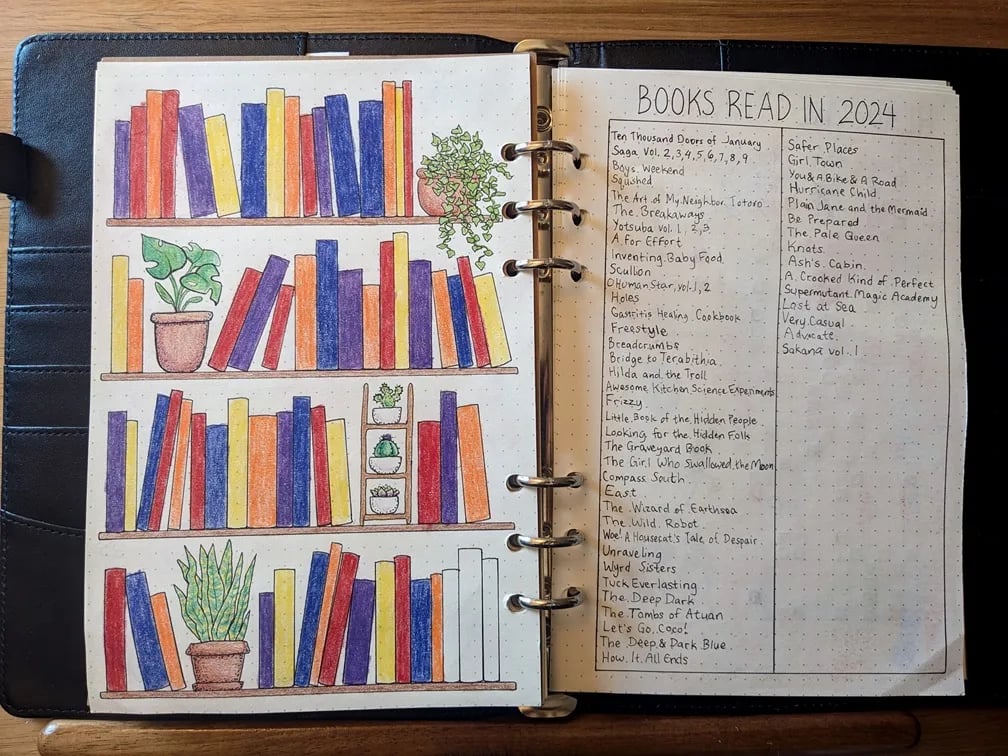 BOOKS READ IN 2024
Ten Thousand Doors of January
Saga Vol. 2,3,4,5,6,7,8,9
Boys Weekend
Squished
The Art of My Neighbor Totoro
The Breakaways
Yotsuba vol. 1, 2, 3
A for Effort
Inventing Baby Food
Scullion
O Human Star, vol. 1, 2
Holes
Gastritis Healing Cookbook
Freestyle
Breadcrumbs
Bridge to Terabithia
Hilda and the Troll
Awesome Kitchen Science Experiments
Frizzy
Little Book of the Hidden People
Looking for the Hidden Folk
The Graveyard Book
The Girl Who Swallowed the Moon
Compass South
East
The Wizard of Earthsea
The Wild Robot
Woe! A Housecat's Tale of Despair
Unraveling
Wyrd Sisters
Tuck Everlasting
The Deep Dark
The Tombs of Atuan
Let's Go, Coco!
The Deep & Dark Blue
How It All Ends
Safer Places
Girl Town
You & A Bike & A Road
Hurricane Child
Plain Jane and the Mermaid
Be Prepared
The Pale Queen
Knots
Ash's Cabin
A Crooked Kind of Perfect
Supermutant Magic Academy
Lost at Sea
Very Casual
Advocate
Sakana vol. 1